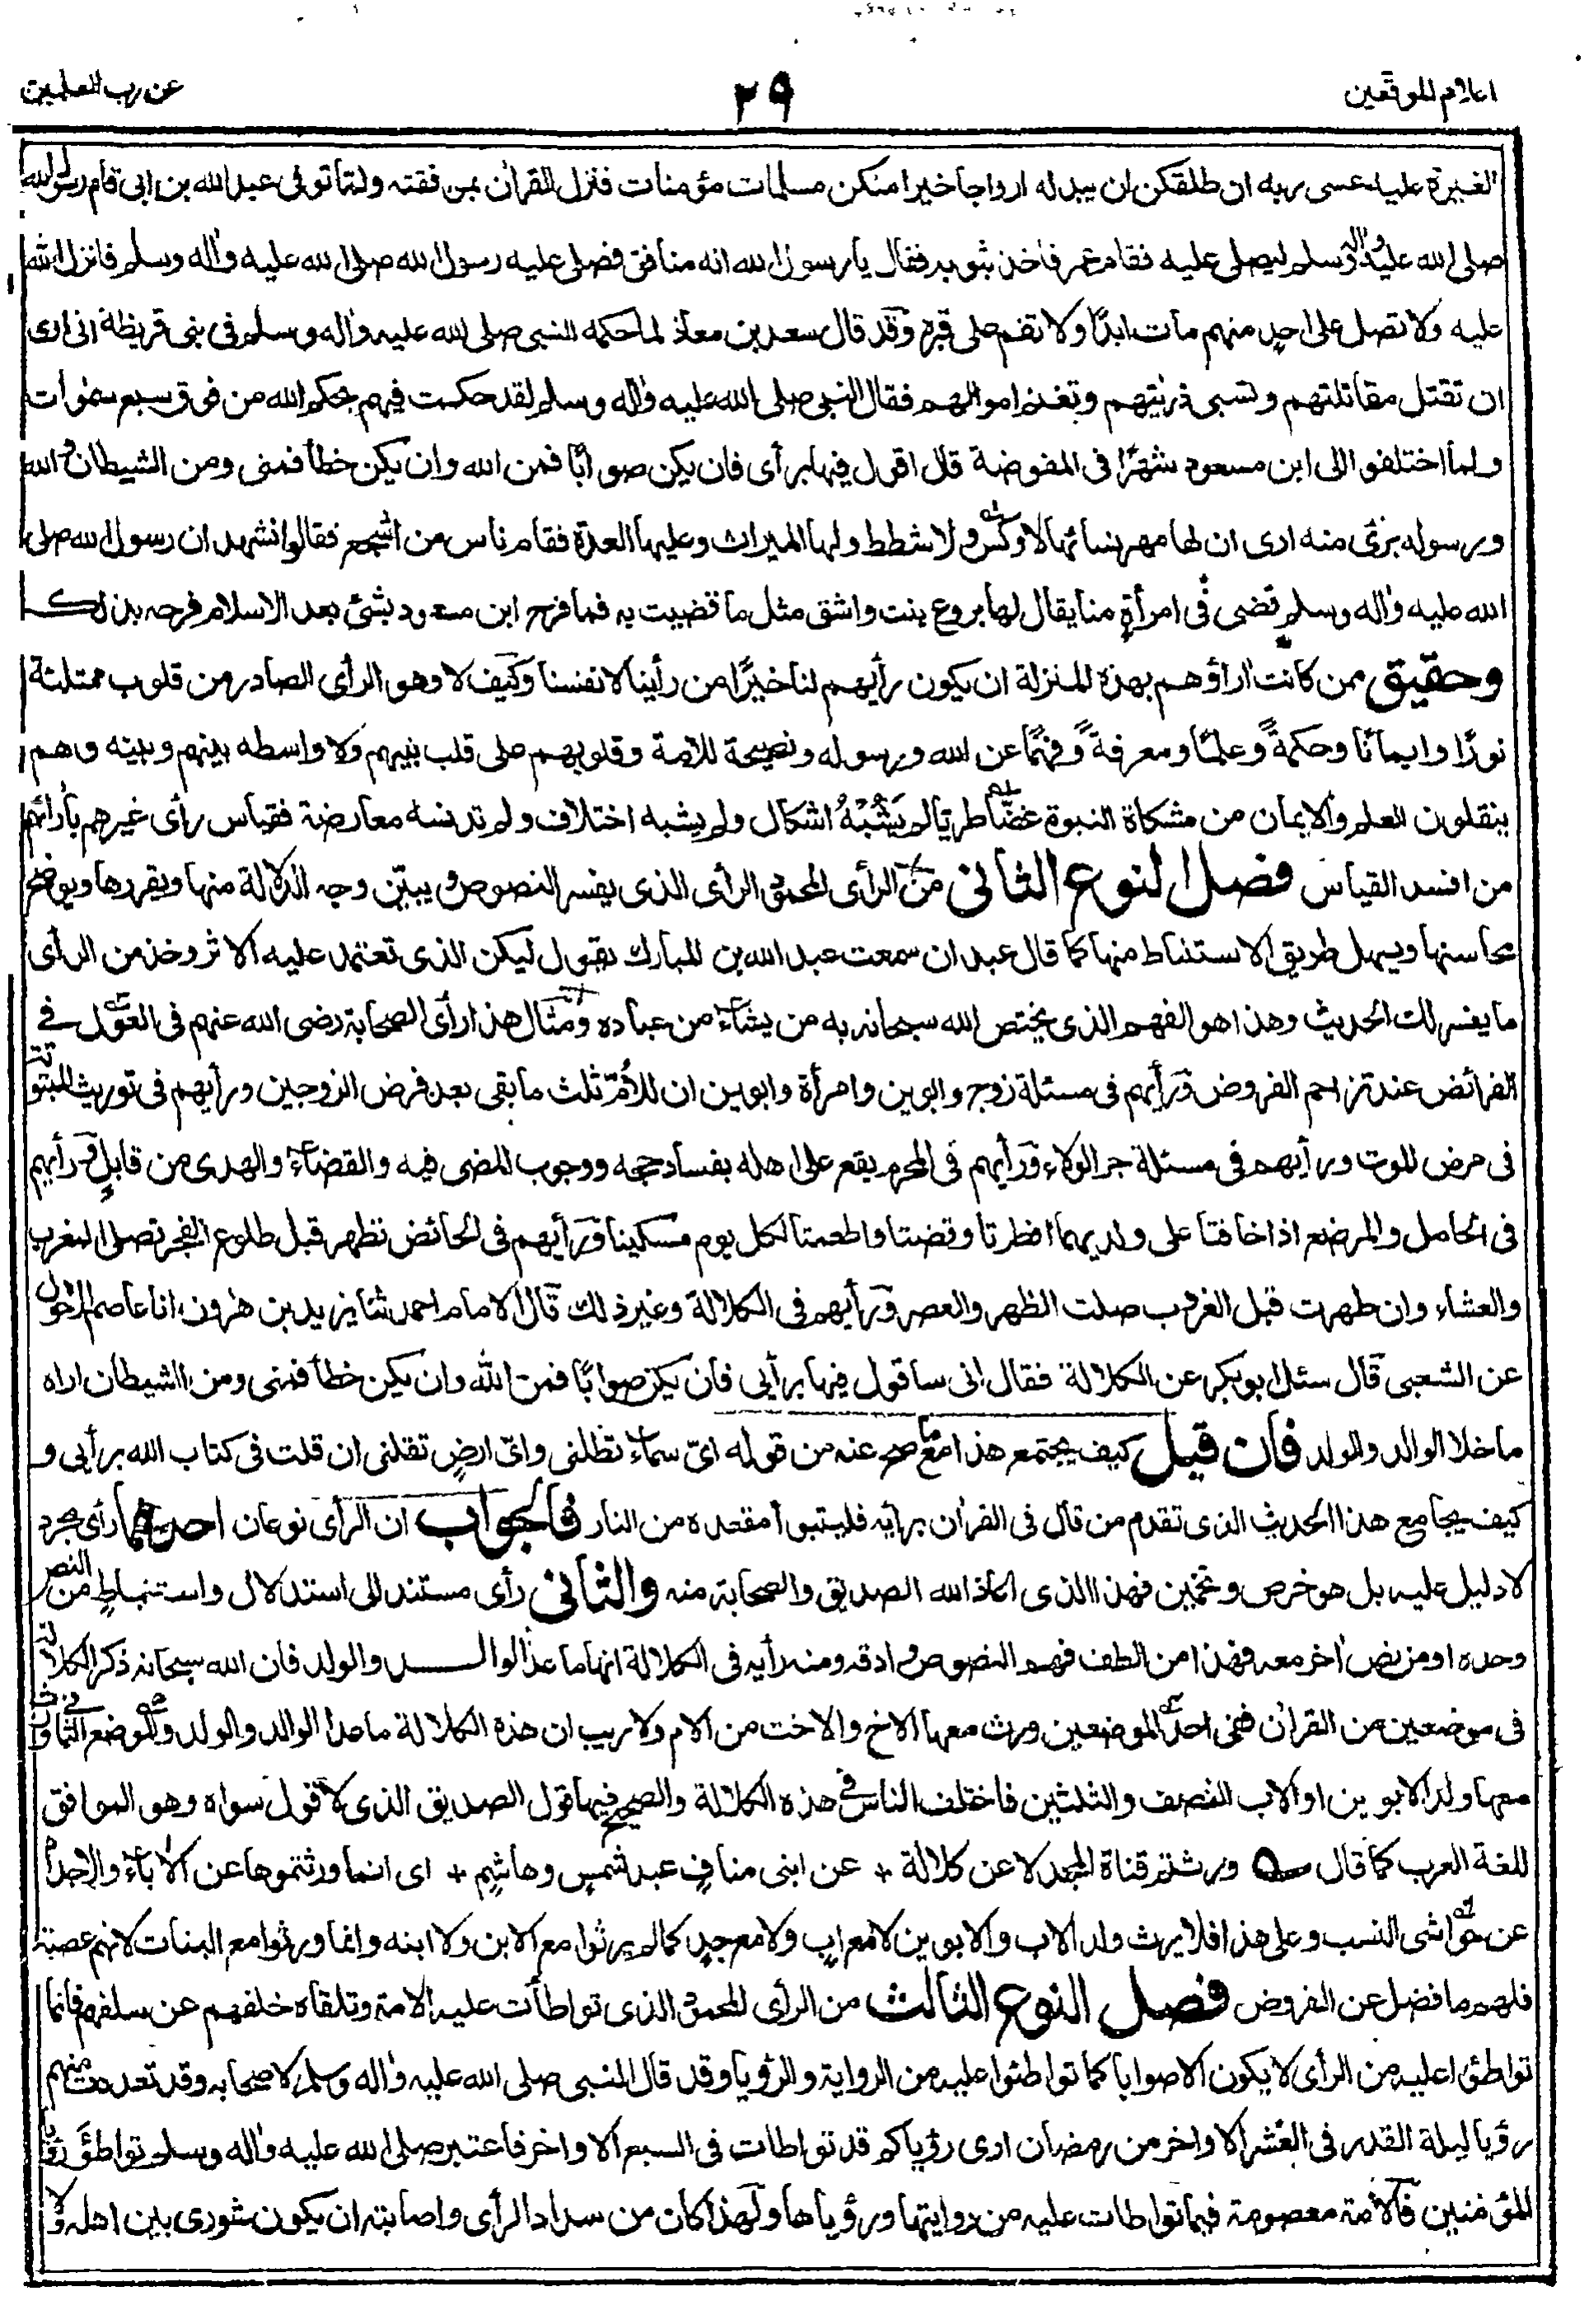 اعلام الموقعين
٢٩
عن رب العلمين
الغيرة عليه عسى ربه ان طلقكن ان يبدله ازواجا خيرا منكن مسلمات مؤمنات فنزل القران بموافقته ولما توفى عبد الله بن ابى قام رسول الله
صلى الله عليه واله وسلم ليصلى عليه فقام عمر فاخذ بثوبه فقال يا رسول الله انه منافق فصلى عليه رسول الله صلى الله عليه واله وسلم فانزل الله
عليه ولا تصل على احد منهم مات ابدًا ولا تقم على قبره وقد قال سعد بن معاذ لما حكمه النبى صلى الله عليه واله وسلم فى بنى قريظة انى ارى
ان تقتل مقاتلتهم وتسبى ذريتهم وتغنم اموالهم فقال النبى صلى الله عليه واله وسلم لقد حكمت فيهم بحكم الله من فوق سبع سموات
ولما اختلفوا الى ابن مسعود شهرًا فى المفوضة قال اقول فيها برأى فان يكن صوابًا فمن الله وان يكن خطأ فمنى ومن الشيطان والله
ورسوله برئ منه ارى ان لها مهر نسائها لا وكس ولا شطط ولها الميراث وعليها العدة فقام ناس من اشجع فقالوا نشهد ان رسول الله صلى
الله عليه واله وسلم قضى فى امرأة منا يقال لها بروع بنت واشق مثل ما قضيت به فما فرح ابن مسعود بشئ بعد الاسلام فرحه بذلك
وحقيق بمن كانت اراؤهم بهذه المنزلة ان يكون رأيهم لنا خيرًا من رأينا لانفسنا وكيف لا وهو الرأى الصادر من قلوب ممتلئة
نورًا وايمانًا وحكمةً وعلمًا ومعرفةً وفهمًا عن الله ورسوله ونصيحة للامة وقلوبهم على قلب نبيهم ولا واسطه بينهم وبينه وهم
ينقلون العلم والايمان من مشكاة النبوة غضًّا طريًّا لم يَشُبْهُ اشكال ولم يشبه اختلاف ولم تدنسه معارضة فقياس رأى غيرهم بارائهم
من افسد القياس فصل النوع الثانى من الرأى المحمود الرأى الذى يفسر النصوص ويبيّن وجه الدلالة منها ويقررها ويوضح
محاسنها ويسهل طريق الاستنباط منها كما قال عبدان سمعت عبد الله بن المبارك يقول ليكن الذى تعتمد عليه الاثر وخذ من الرأى
ما يفسر لك الحديث وهذا هو الفهم الذى يختص الله سبحانه به من يشاء من عباده ومثال هذا رأى الصحابة رضى الله عنهم فى العول فى
الفرائض عند تزاحم الفروض ورأيهم فى مسئلة زوج وابوين وامرأة وابوين ان للأم ثلث ما بقى بعد فرض الزوجين ورأيهم فى توريث المبتوتة
فى مرض الموت ورأيهم فى مسئلة جر الولاء ورأيهم فى المحرم يقع على اهله بفساد حجه ووجوب المضى فيه والقضاء والهدى من قابلٍ ورأيهم
فى الحامل والمرضع اذا خافتا على ولديهما افطرتا وقضتا واطعمتا لكل يوم مسكينا ورأيهم فى الحائض تطهر قبل طلوع الفجر تصلى المغرب
والعشاء وان طهرت قبل الغروب صلت الظهر والعصر ورأيهم فى الكلالة وغير ذلك قال الامام احمد ثنا يزيد بن هرون انا عاصم الاحول
عن الشعبى قال سئل ابو بكر عن الكلالة فقال انى ساقول فيها برأيى فان يكن صوابًا فمن الله وان يكن خطأ فمنى ومن الشيطان اراه
ما خلا الوالد والولد فان قيل كيف يجتمع هذا مع ما صح عنه من قوله اىّ سماء تظلنى واىّ ارضٍ تقلنى ان قلت فى كتاب الله برأيى و
كيف يجامع هذا الحديث الذى تقدم من قال فى القران برأيه فليتبوأ مقعده من النار فالجواب ان الرأى نوعان احدهما رأى مجرد
لا دليل عليه بل هو خرص وتخمين فهذا الذى اعاذ الله الصديق والصحابة منه والثانى رأى مستند الى استدلال واستنباط من النص
وحده او من نص اخر معه فهذا من الطف فهم النصوص وادقه ومنه رأيه فى الكلالة انها ما عدا الوالد والولد فان الله سبحانه ذكر الكلالة
فى موضعين من القران ففى احد الموضعين ورث معها الاخ والاخت من الام ولا ريب ان هذه الكلالة ما عدا الوالد والولد والموضع الثانى ورث
معها ولد الابوين او الاب النصف والثلثين فاختلف الناس فى هذه الكلالة والصحيح فيها قول الصديق الذى لا قول سواه وهو الموافق
للغة العرب كما قال ورثتم قناة المجد لا عن كلالة + عن ابنى منافٍ عبد شمسٍ وهاشم + اى انما ورثتموها عن الاباء والاجداد لا
عن حواشى النسب وعلى هذا فلا يرث ولد الاب والابوين لا مع ابٍ ولا مع جدٍ كما لم يرثوا مع الابن ولا ابنه وانما ورثوا مع البنات لانهم عصبة
فلهم ما فضل عن الفروض فصل النوع الثالث من الرأى المحمود الذى تواطأت عليه الامة وتلقاه خلفهم عن سلفهم فانما
تواطؤا عليه من الرأى لا يكون الا صوابا كما تواطئوا عليه من الرواية والرؤيا وقد قال النبى صلى الله عليه واله وسلم لاصحابه وقد تعددت منهم
رؤيا ليلة القدر فى العشر الاواخر من رمضان ارى رؤياكم قد تواطات فى السبع الاواخر فاعتبر صلى الله عليه واله وسلم تواطؤ رؤيا
المؤمنين فالامة معصومة فيما تواطات عليه من روايتها ورؤياها ولهذا كان من سداد الرأى واصابته ان يكون شورى بين اهله ولا